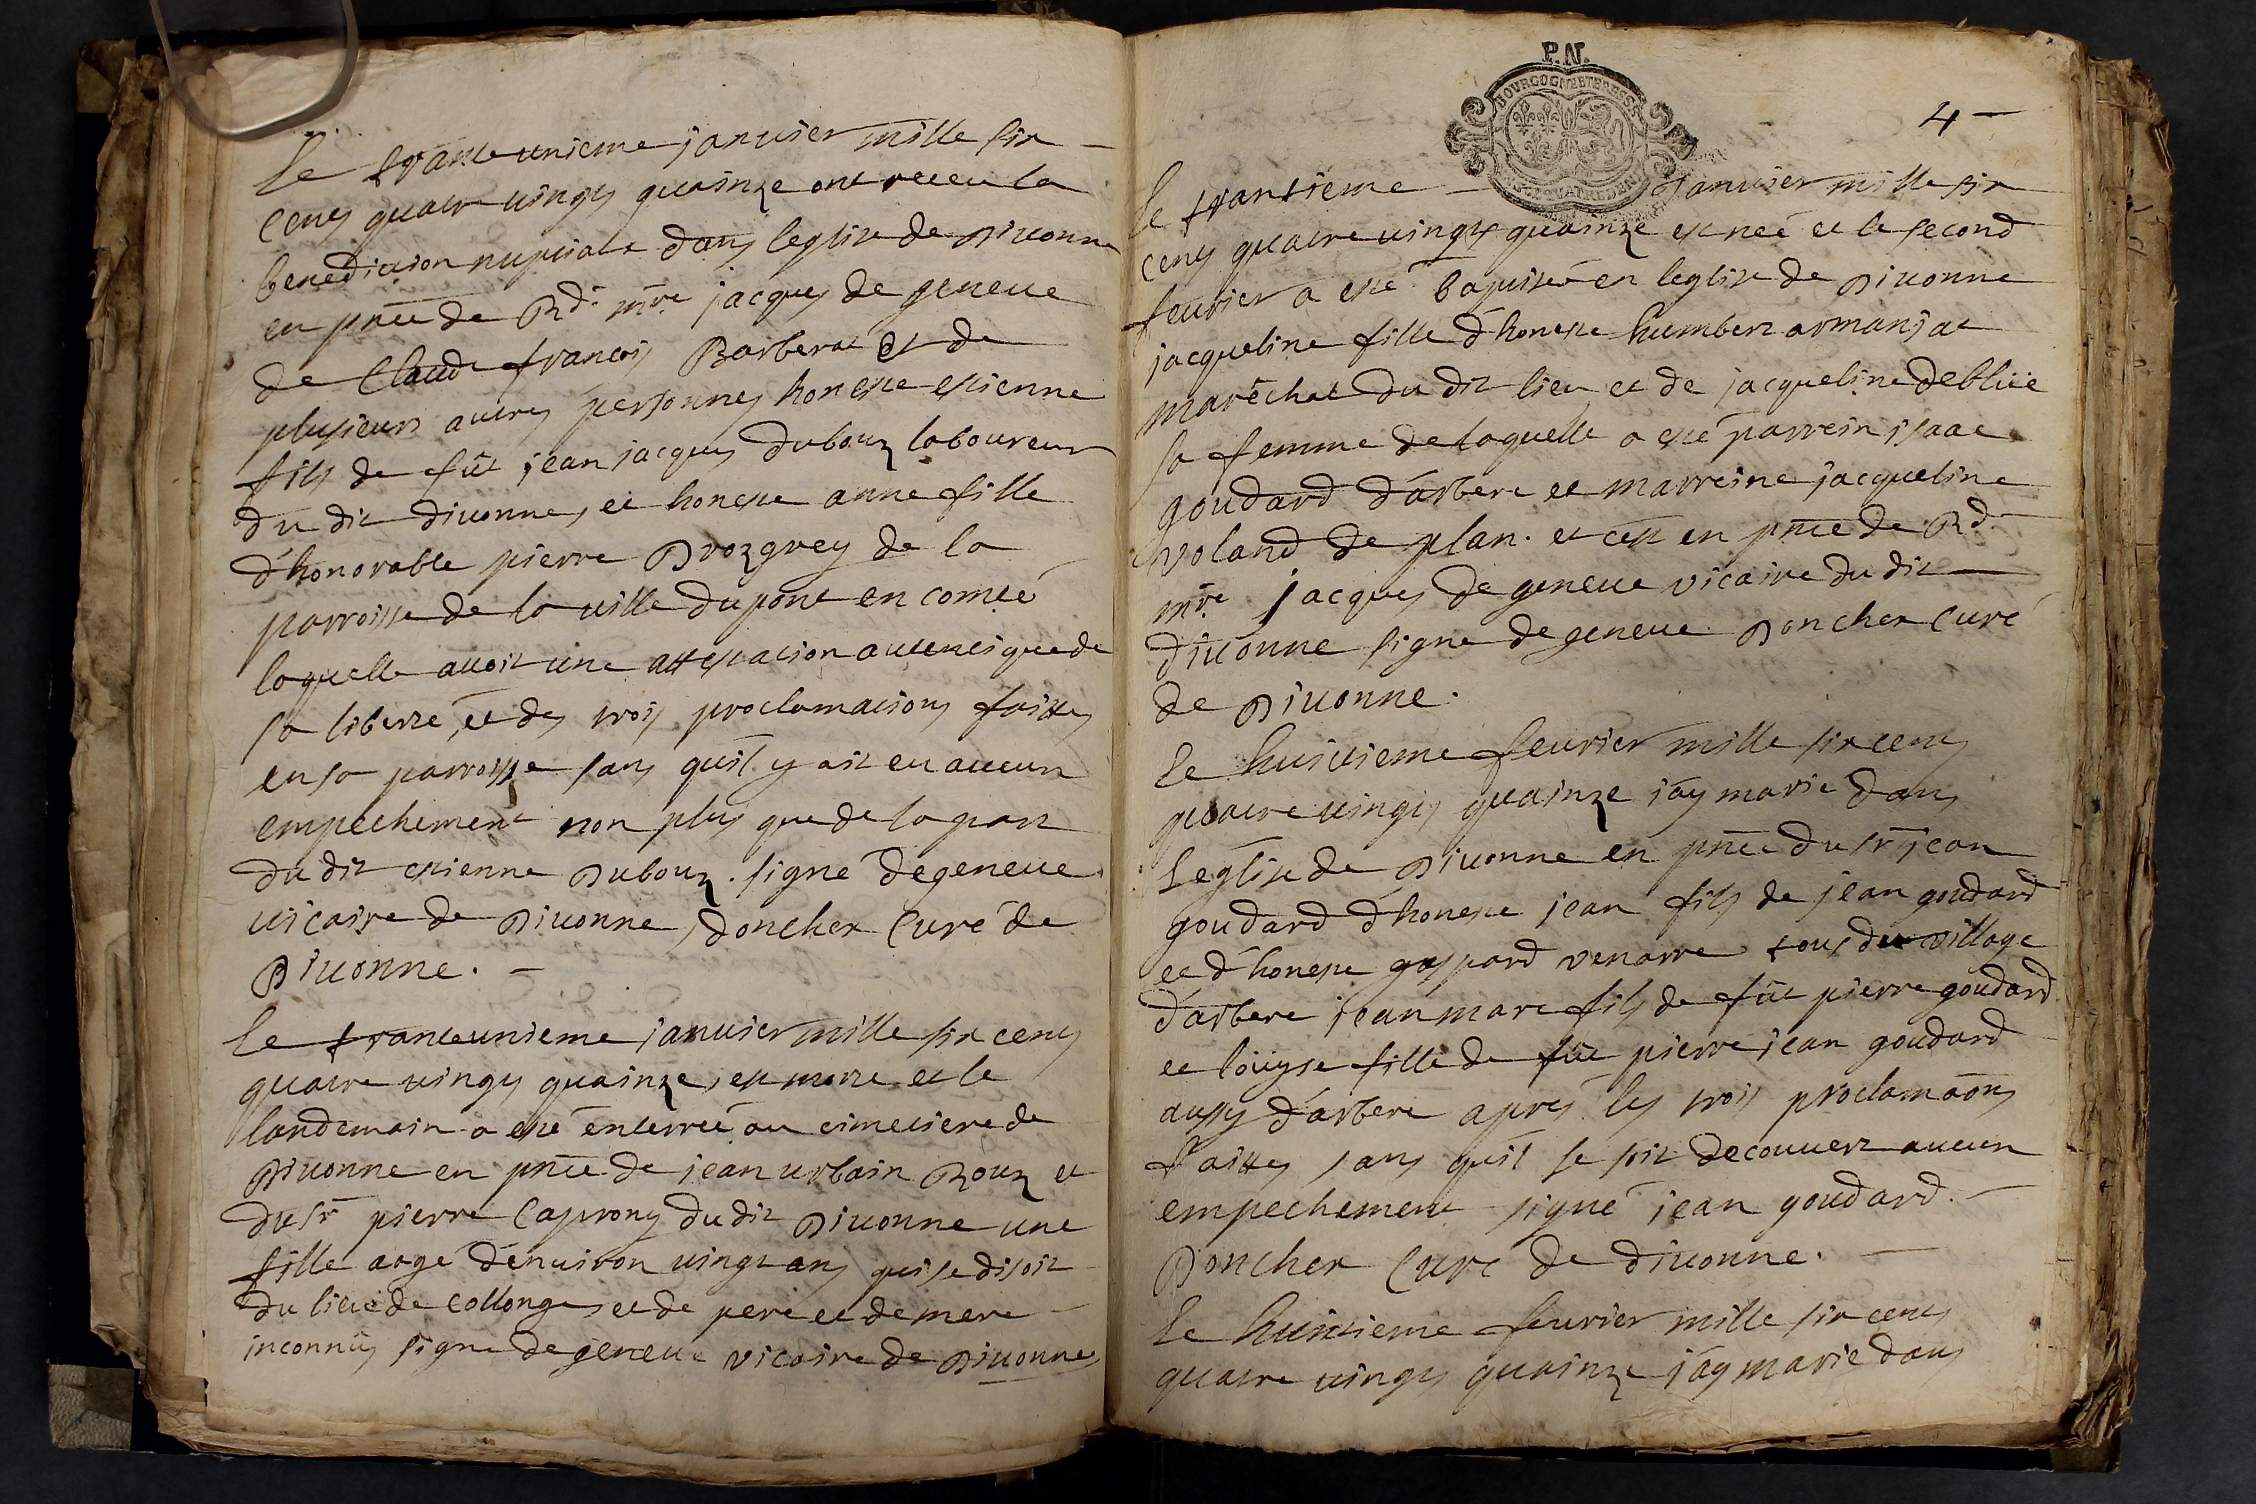 le tranteunieme janvier mille six
cens quatre vings quainze ont receu la
benediction nuptiale dans leglise de Divonne
en pnce de Rd. mre jacques de geneve
de Claude francois Barberat et de
plusieurs autres personnes honeste estienne
fils de fût jean jacques dubouz laboureur
du dit divonne, et honeste anne fille
d'honorable pierre Brozgrey de la
parroisse de la ville du pont en comté
laquelle avoit une attestation autentique de
sa liberté, et des trois proclamations faittes
en sa parroisse sans quil y ait eu aucun
empechement non plus que de la part
du dit estienne Dubouz. signé degeneve
vicaire de Divonne, doncher Curé de
Divonne.
le tranteunieme janvier mille six cens
quatre vings quainze, est morte et le
landemain a esté enterreé au cimetiere de
Divonne en pnce de jean urbain Rouz et
du sr pierre Caprony du dit Divonne une
fille aagé d'environ vingt ans qui se disoit
du lieu de Collonges et de pere et de mere
inconnûs signe degeneve vicaire de Divonnes
P.N.
BOVRGOGNE ET BRESSE
4
le trantieme janvier mille six
cens quatre vings quainze est neé et le second
fevrier a esté baptiseé en leglise de Divonne
jacqueline fille d'honeste humbert armanjat
maréchal du dit lieu et de jacqueline debliie
sa femme de laquelle a esté parrein isaac
goudard d'arbere et marreine jacqueline
voland de plan. et cest en pnce de Rd.
mre. jacques de geneve vicaire du dit
divonne signe degeneve Doncher Curé
de Divonne.
le huitieme fevrier mille six cens
quatre vings quainze j'ay marie dans
Leglise de Divonne en pnce du sr jean
goudard d'honeste jean fils de jean goudard
et d'honeste gaspard venarre tous du village
d'arbere jean marc fils de fût pierre goudard
et löuyse fille de fût pierre jean goudard
aussy d'arbere apres les trois proclamaõns
faittes sans quil se soit decouvert aucun
empechement signé jean goudard.
Doncher Curé de divonne.
le huitieme fevrier mille six cens
quatre vings quainze j'ay marie dans